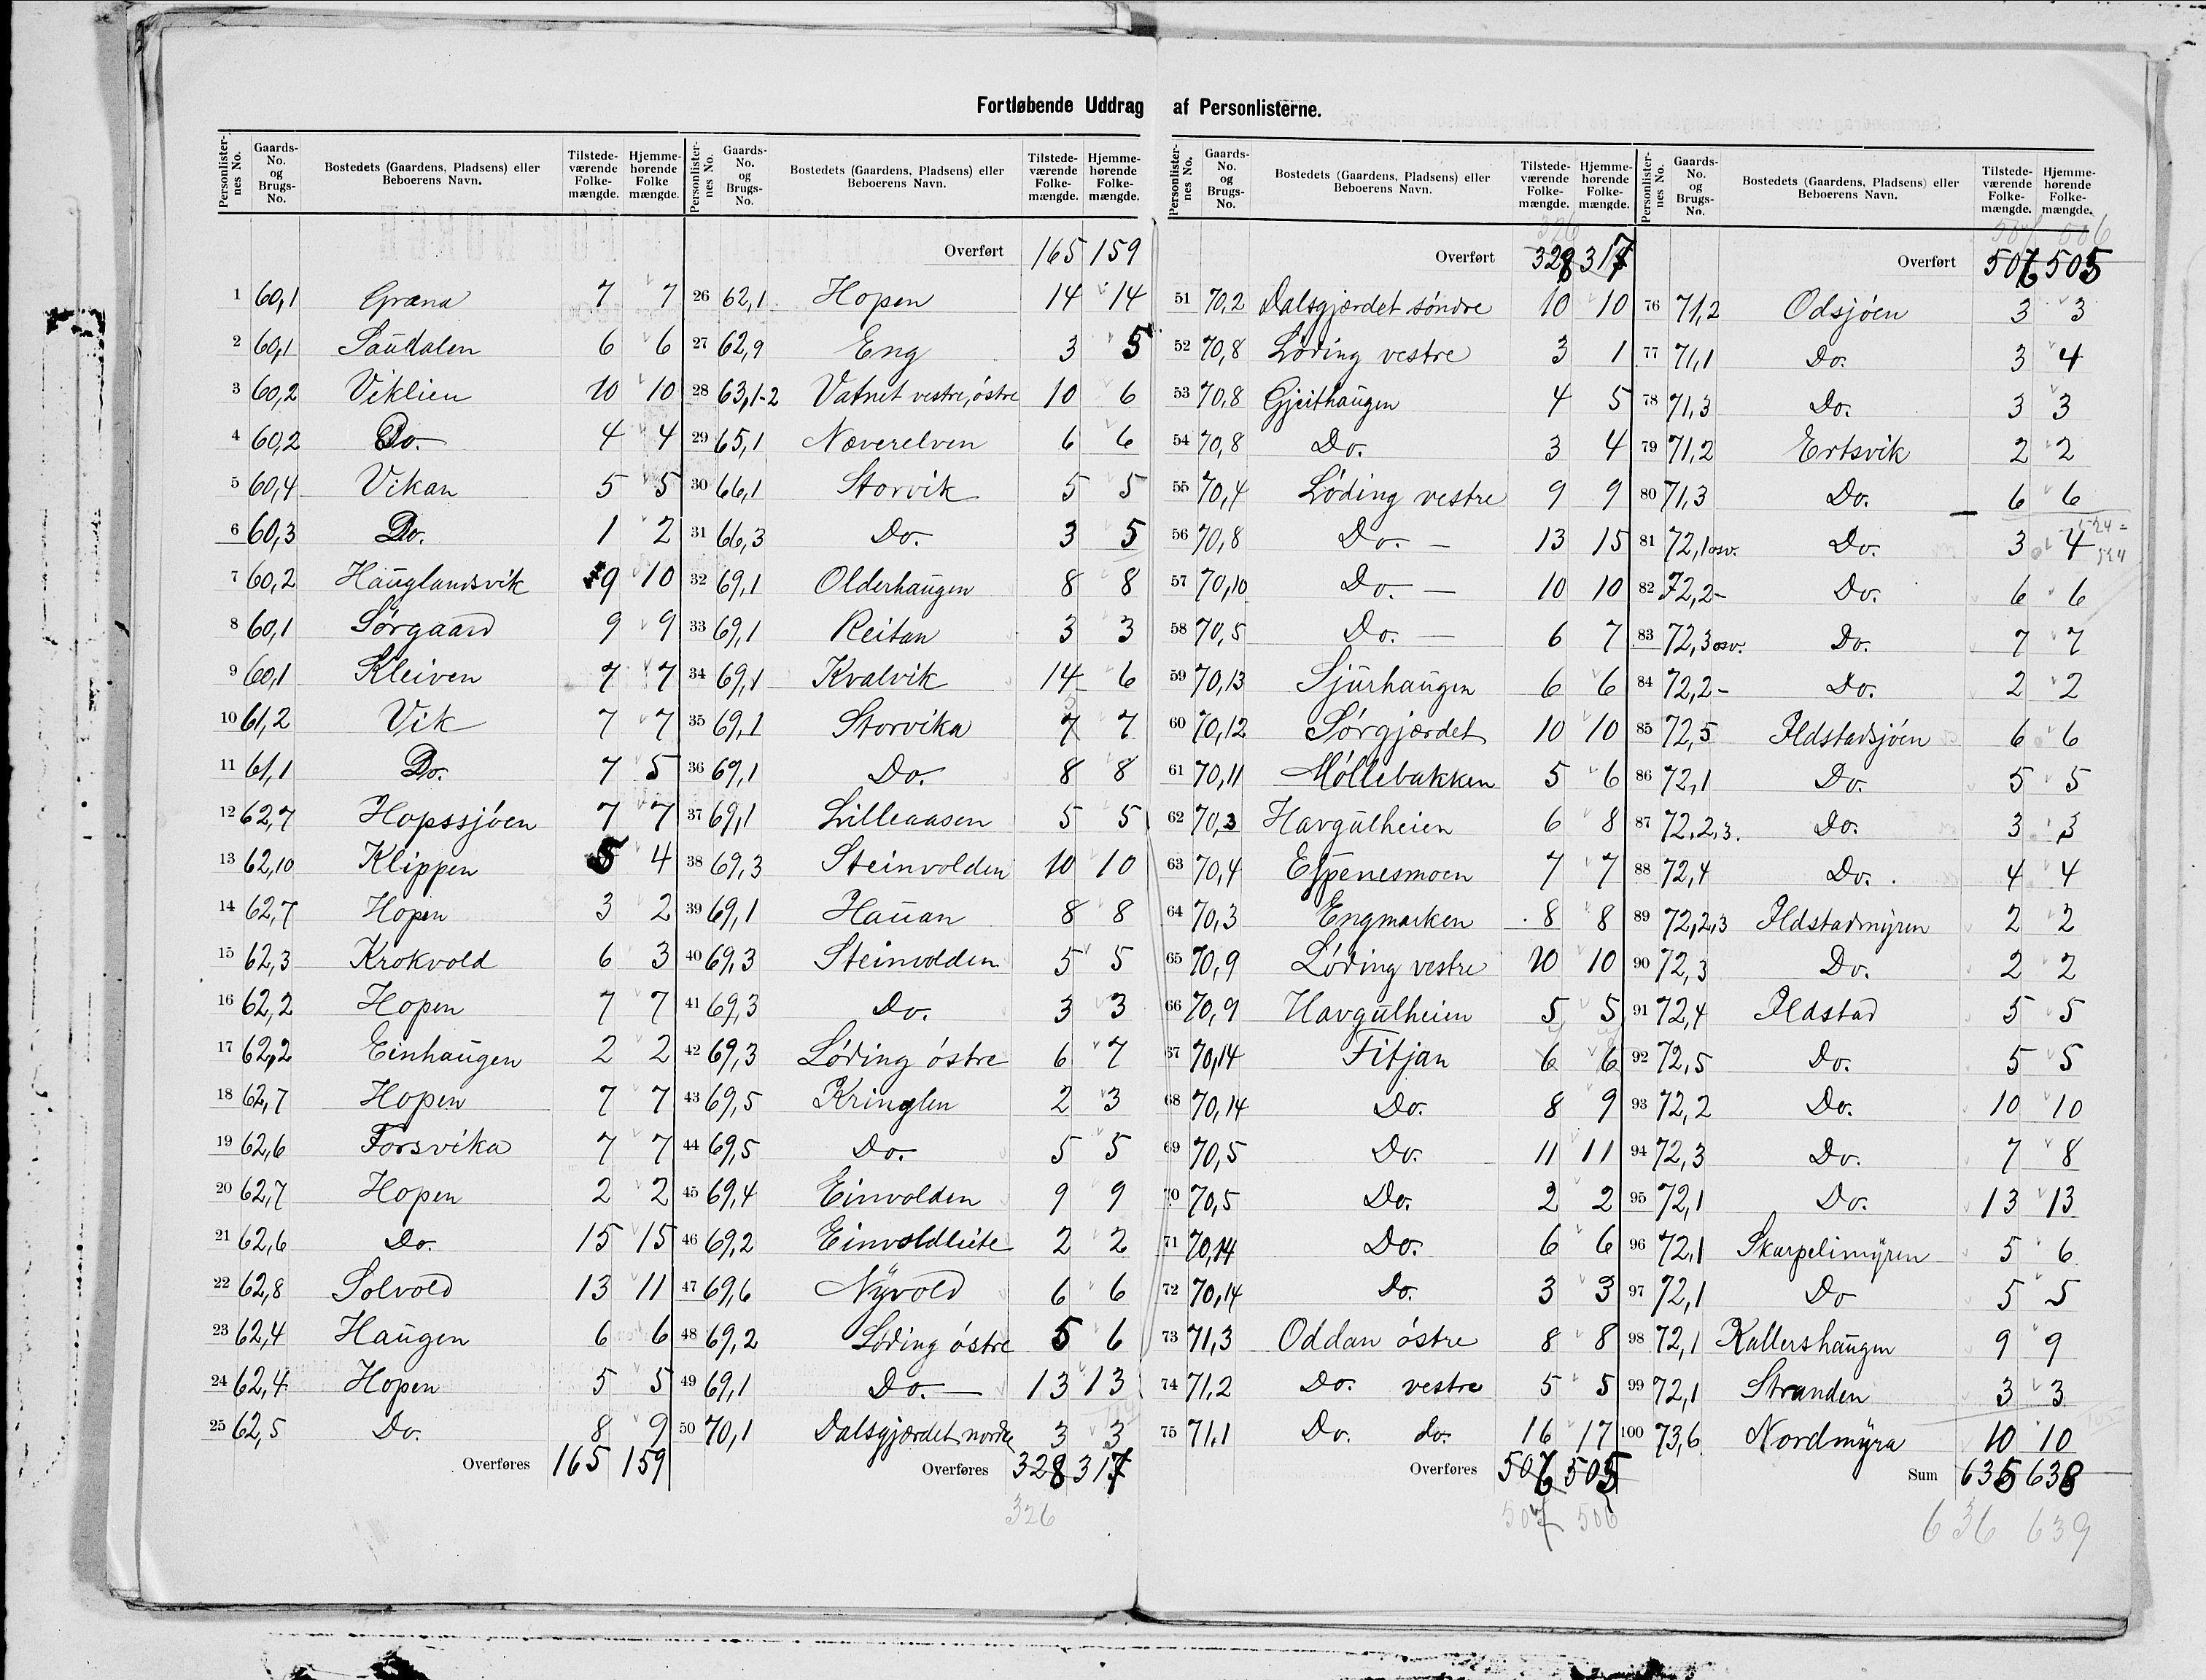 Fortløbende Uddrag af Personlisterne.
Personlisternes No. Gaards-No. og Brugs-No. Bostedets (Gaardens, Pladsens) eller Beboerens Navn. Tilstedeværende Folkemængde. Hjemmehørende Folkemængde.
1 60,1 Græna 7 7
2 60,1 Saudalen 6 6
3 60,2 Viklien 10 10
4 60,2 Do. 4 4
5 60,4 Vikan 5 5
6 60,3 Do. 1 2
7 60,2 Hauglandsvik 9 10
8 60,1 Sørgaard 9 9
9 60,1 Kleiven 7 7
10 61,2 Vik 7 7
11 61,1 Do. 7 5
12 62,7 Hopssjøen 7 7
13 62,10 Klippen 5 4
14 62,7 Hopen 3 2
15 62,3 Krokvold 6 3
16 62,2 Hopen 7 7
17 62,2 Einhaugen 2 2
18 62,7 Hopen 7 7
19 62,6 Forsvika 7 7
20 62,7 Hopen 2 2
21 62,6 Do. 15 15
22 62,8 Solvold 13 11
23 62,4 Haugen 6 6
24 62,4 Hopen 5 5
25 62,5 Do. 8 9
Overføres 165 159
Personlisternes No. Gaards-No. og Brugs-No. Bostedets (Gaardens, Pladsens) eller Beboerens Navn. Tilstedeværende Folkemængde. Hjemmehørende Folkemængde.
Overført 165 159
26 62,1 Hopen 14 14
27 62,9 Eng 3 5
28 63,1-2 Vatnet vestre, østre 10 6
29 65,1 Næverelven 6 6
30 66,1 Storvik 5 5
31 66,3 Do. 3 5
32 69,1 Olderhaugen 8 8
33 69,1 Reitan 3 3
34 69,1 Kvalvik 14 6
35 69,1 Storvika 7 7
36 69,1 Do. 8 8
37 69,1 Lilleaasen 5 5
38 69,3 Steinvolden 10 10
39 69,1 Hauan 8 8
40 69,3 Steinvolden 5 5
41 69,3 Do. 3 3
42 69,3 Løding østre 6 7
43 69,5 Kringlen 2 3
44 69,5 Do. 5 5
45 69,4 Einvolden 9 9
46 69,2 Einvoldleite 2 2
47 69,6 Nyvold 6 6
48 69,2 Løding østre 5 6
49 69,1 Do. — 13 13
50 70,1 Dalsgjærdet nordre 3 3
Overføres 328 317
326
Personlisternes No. Gaards-No. og Brugs-No. Bostedets (Gaardens, Pladsens) eller Beboerens Navn. Tilstedeværende Folkemængde. Hjemmehørende Folkemængde.
326
Overført 328 317
51 70,2 Dalsgjærdet søndre 10 10
52 70,8 Løding vestre 3 1
53 70,8 Gjeithaugen 4 5
54 70,8 Do. 3 4
55 70,4 Løding vestre 9 9
56 70,8 Do. — 13 15
57 70,10 Do. — 10 10
58 70,5 Do. — 6 7
59 70,13 Sjurhaugen 6 6
60 70,12 Sørgjærdet 10 10
61 70,11 Møllebakken 5 6
62 70,3 Havgulheien 6 8
63 70,4 Espenesmoen 7 7
64 70,3 Engmarken 8 8
65 70,9 Løding vestre 10 10
66 70,9 Havgulheien 5 5
67 70,14 Fitjan 6 6
68 70,14 Do. 8 9
69 70,5 Do. 11 11
70 70,5 Do. 2 2
71 70,14 Do. 6 6
72 70,14 Do. 3 3
73 71,3 Oddan østre 8 8
74 71,2 Do. vestre 5 5
75 71,1 Do. do. 16 17
Overføres 506 505
507 506
Personlisternes No. Gaards-No. og Brugs-No. Bostedets (Gaardens, Pladsens) eller Beboerens Navn. Tilstedeværende Folkemængde. Hjemmehørende Folkemængde.
507 506
Overført 506 505
76 71,2 Odsjøen 3 3
77 71,1 Do. 3 4
78 71,3 Do. 3 3
79 71,2 Ertsvik 2 2
80 71,3 Do. 6 6
81 72,1 osv. Do. 3 4
82 72,2- Do. 6 6
83 72,3 osv. Do. 7 7
84 72,2- Do. 2 2
85 72,5 Ildstadsjøen 6 6
86 72,1 Do. 5 5
87 72,2,3. Do. 3 3
88 72,4 Do. 4 4
89 72,2,3 Ildstadmyren 2 2
90 72,3 Do. 2 2
91 72,4 Ildstad 5 5
92 72,5 Do. 5 5
93 72,2 Do. 10 10
94 72,3 Do. 7 8
95 72,1 Do. 13 13
96 72,1 Skarpelimyren 5 6
97 72,1 Do 5 5
98 72,1 Kallershaugen 9 9
99 72,1 Stranden 3 3
100 73,6 Nordmyra 10 10
Sum 635 638
636 639